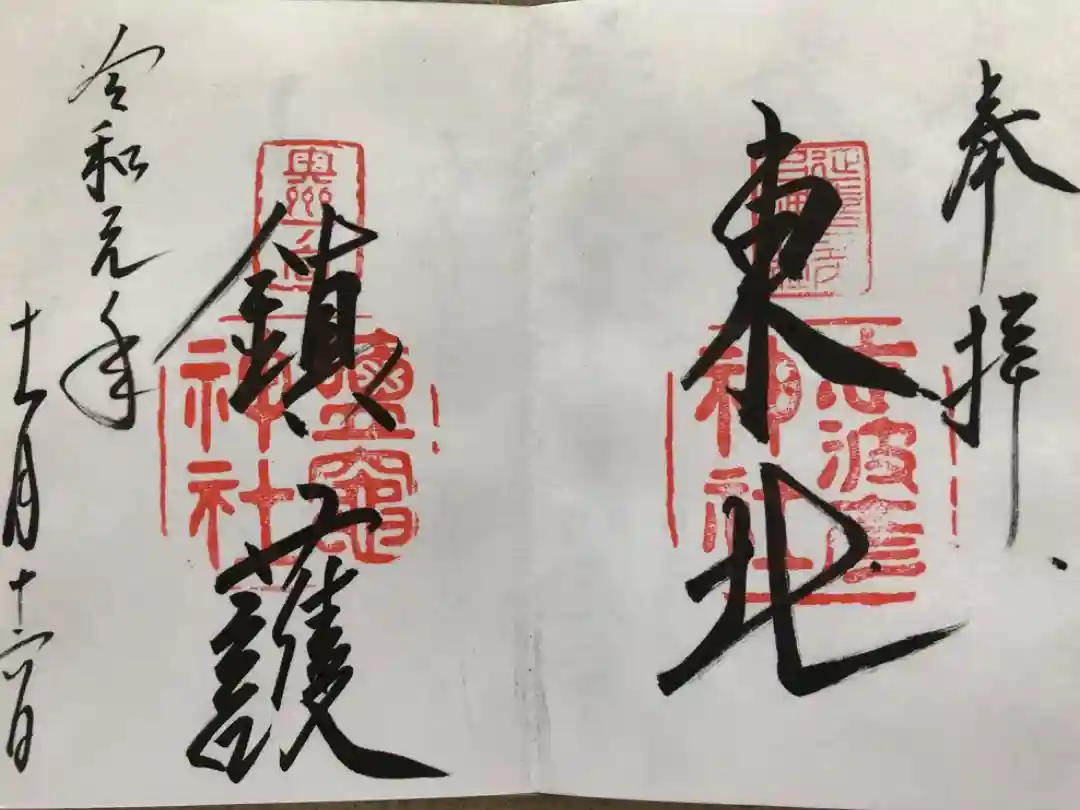 奉拝
東北
志波彦
神社
鎮護
奥州
一宮
鹽竈
神社
令和元年
十一月十六日